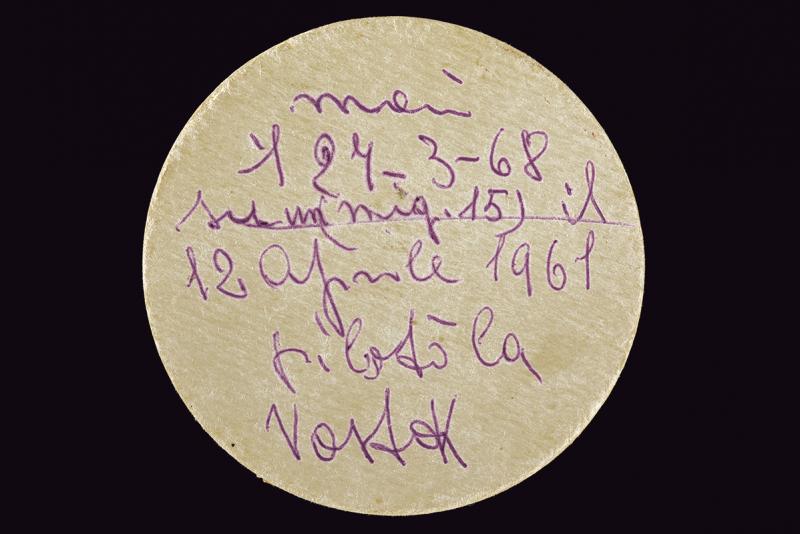 morì
il 27-3-68
su un (mig. 15) il
12 Aprile 1961
pilotò la
Vostok